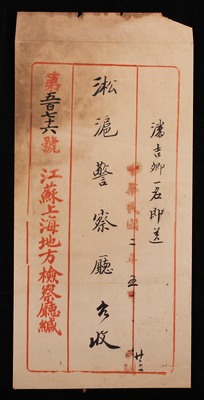 潘吉卿一名即送
中華民國二年五月廿六日
淞滬警察廳台收
江蘇上海地方檢察廳緘
第五百七十六號